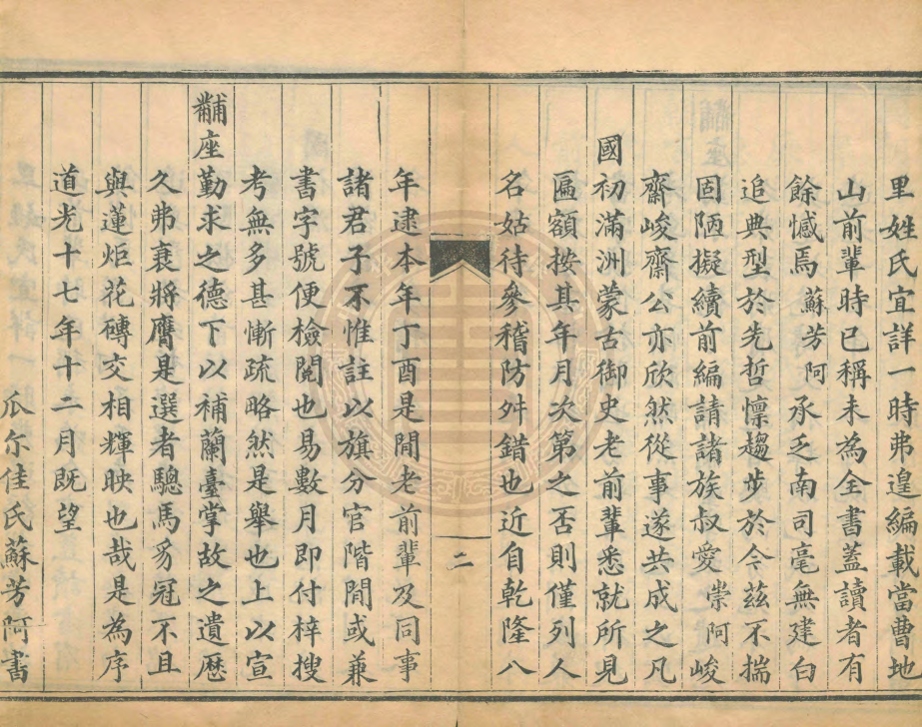 里姓氏宜詳一時弗遑編載當曹地
山前輩時已稱未為全書葢讀者有
餘憾焉蘇芳阿承乏南司毫無建白
追典型於先哲懍趨步於今茲不揣
固陋擬續前編請諸族叔愛崇阿峻
齋峻齋公亦欣然從事遂共成之凡
國初滿洲蒙古御史老前輩悉就所見
匾額按其年月次第之否則僅列人
名姑待參稽防舛錯也近自乾隆八
二
年逮本年丁酉是閒老前輩及同事
諸君子不惟註以旗分官階間或兼
書字號便檢閱也易數月即付梓搜
考無多甚慚疏略然是舉也上以宣
黼座勤求之德下以補蘭臺掌故之遺歷
久弗衰將膺是選者驄馬豸冠不且
與蓮炬花磚交相輝映也哉是為序
道光十七年十二月既望
瓜尔佳氏蘇芳阿書